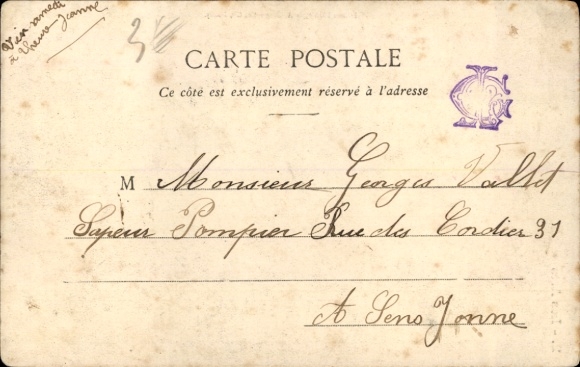 Jeanne
CARTE POSTALE
Ce côté est exclusivement réservé à l'adresse
M Monsieur Georges Vallet
Sapeur Pompier Rue des Cordier 31
A Sens Yonne